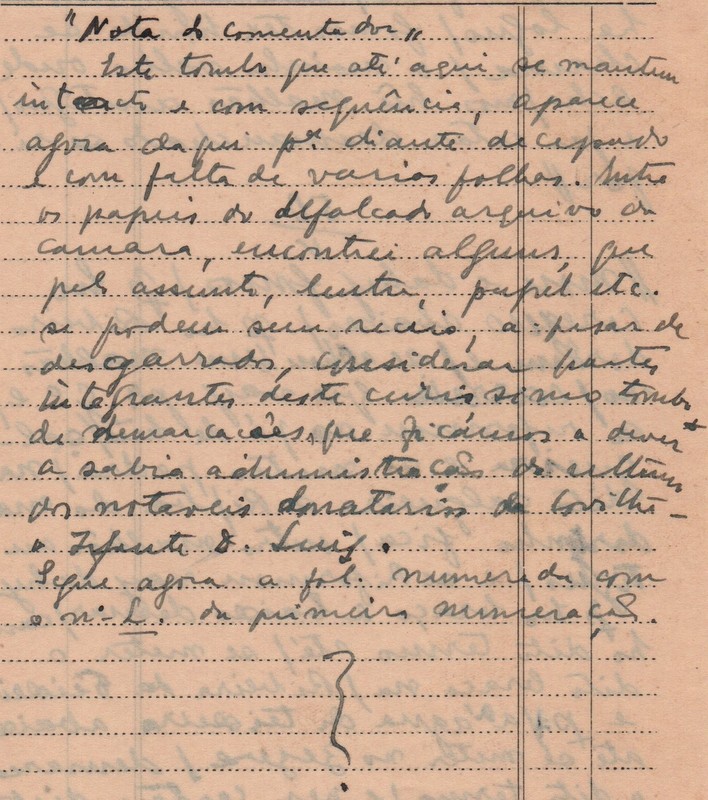 "Nota do comentador"
Este tombo que até aqui se mantem
intacto e com sequência, aparece
agora daqui pª diante decepado
e com falta de varias folhas. Entre
os papeis do desfalcado arquivo da
camara, encontrei alguns, que
pelo assunto, lustre, papel etc.
se podem sem receio, a-pesar de
desgarrados, considerar partes
integrantes deste curiosissimo tombo
de demarcacões, que ficámos a dever
a sabia administração do ultimo
dos notaveis donatarios da Covilhã -
o Infante D. Luiz.
Segue agora a fol. numerada com
o nº - L. da primeira numeração.